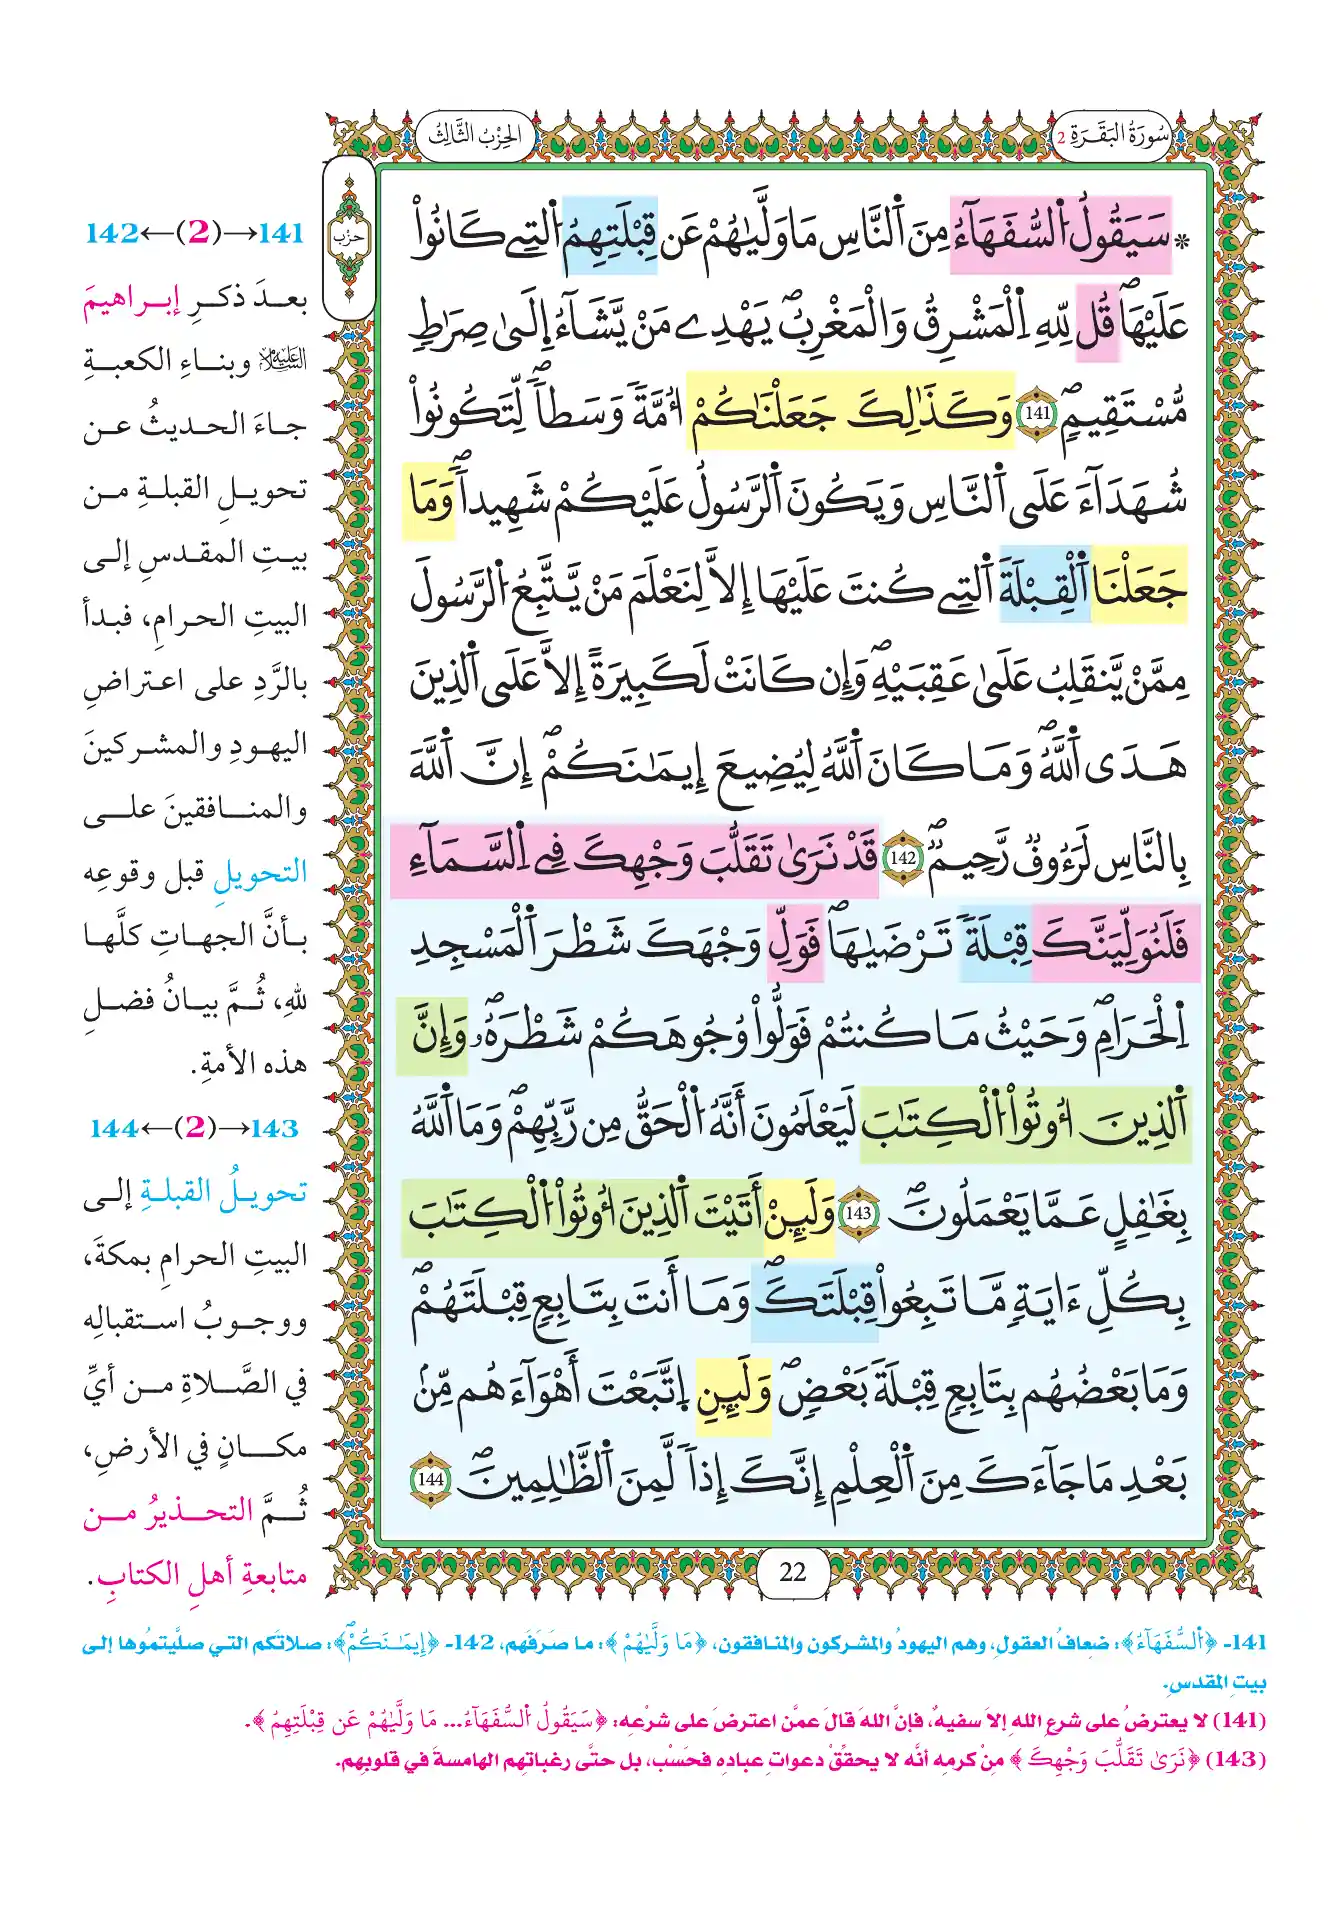 سُورَةُ البَقَرَةِ 2
الحِزْبُ الثَّالِثُ
حزب
* سَيَقُولُ اُ۬لسُّفَهَآءُ مِنَ اَ۬لنَّاسِ مَا وَلَّيٰهُمْ عَن قِبْلَتِهِمُ اُ۬لتِے كَانُواْ
عَلَيْهَاۖ قُل لِّلهِ اِ۬لْمَشْرِقُ وَالْمَغْرِبُۖ يَهْدِے مَنْ يَّشَآءُ اِ۪لَىٰ صِرَٰطٖ
مُّسْتَقِيمٖۖ 141 وَكَذَٰلِكَ جَعَلْنَٰكُمُۥٓ أُمَّةٗ وَسَطاٗ لِّتَكُونُواْ
شُهَدَآءَ عَلَى اَ۬لنَّاسِ وَيَكُونَ اَ۬لرَّسُولُ عَلَيْكُمْ شَهِيداٗۖ وَمَا
جَعَلْنَا اَ۬لْقِبْلَةَ اَ۬لتِے كُنتَ عَلَيْهَا إِلاَّ لِنَعْلَمَ مَنْ يَّتَّبِعُ اُ۬لرَّسُولَ
مِمَّنْ يَّنقَلِبُ عَلَىٰ عَقِبَيْهِۖ وَإِن كَانَتْ لَكَبِيرَةً إِلاَّ عَلَى اَ۬لذِينَ
هَدَى اَ۬للَّهُۖ وَمَا كَانَ اَ۬للَّهُ لِيُضِيعَ إِيمَٰنَكُمْۖ إِنَّ اَ۬للَّهَ
بِالنَّاسِ لَرَءُوفٞ رَّحِيمٞۖ 142 قَدْ نَرَىٰ تَقَلُّبَ وَجْهِكَ فِے اِ۬لسَّمَآءِ
فَلَنُوَلِّيَنَّكَ قِبْلَةٗ تَرْضَيٰهَاۖ فَوَلِّ وَجْهَكَ شَطْرَ اَ۬لْمَسْجِدِ
اِ۬لْحَرَامِۖ وَحَيْثُ مَا كُنتُمْ فَوَلُّواْ وُجُوهَكُمْ شَطْرَهُۥۖ وَإِنَّ
اَ۬لذِينَ أُوتُواْ اُ۬لْكِتَٰبَ لَيَعْلَمُونَ أَنَّهُ اُ۬لْحَقُّ مِن رَّبِّهِمْۖ وَمَا اَ۬للَّهُ
بِغَٰفِلٍ عَمَّا يَعْمَلُونَۖ 143 وَلَئِنْ أَتَيْتَ اَ۬لذِينَ أُوتُواْ اُ۬لْكِتَٰبَ
بِكُلِّ ءَايَةٖ مَّا تَبِعُواْ قِبْلَتَكَۖ وَمَا أَنتَ بِتَابِعٖ قِبْلَتَهُمْۖ
وَمَا بَعْضُهُم بِتَابِعٖ قِبْلَةَ بَعْضٖۖ وَلَئِنِ اِ۪تَّبَعْتَ أَهْوَآءَهُم مِّنۢ
بَعْدِ مَا جَآءَكَ مِنَ اَ۬لْعِلْمِ إِنَّكَ إِذاٗ لَّمِنَ اَ۬لظَّٰلِمِينَۖ 144
22
141→(2)←142
بعدَ ذكرِ إبراهيمَ
عليه السلام وبناءِ الكعبةِ
جاءَ الحديثُ عن
تحويلِ القبلةِ من
بيتِ المقدسِ إلى
البيتِ الحرامِ، فبدأ
بالرَّدِ على اعتراضِ
اليهودِ والمشركينَ
والمنافقينَ على
التحويلِ قبل وقوعِه
بأنَّ الجهاتِ كلَّها
للهِ، ثُمَّ بيانُ فضلِ
هذه الأمةِ.
143→(2)←144
تحويلُ القبلةِ إلى
البيتِ الحرامِ بمكةَ،
ووجوبُ استقبالِه
في الصَّلاةِ من أيِّ
مكانٍ في الأرضِ،
ثُمَّ التحذيرُ من
متابعةِ أهلِ الكتابِ.
141- ﴿اُ۬لسُّفَهَآءُ﴾: ضعافُ العقولِ، وهم اليهودُ والمشركون والمنافقون، ﴿مَا وَلَّيٰهُمْ﴾: ما صَرَفَهم، 142- ﴿إِيمَٰنَكُمْۖ﴾: صلاتَكم التي صلَّيتمُوها إلى
بيتِ المقدسِ.
(141) لا يعترضُ على شرعِ اللهِ إلا سفيهٌ، فإنَّ اللهَ قالَ عمَّن اعترضَ على شرْعِه: ﴿سَيَقُولُ اُ۬لسُّفَهَآءُ... مَا وَلَّيٰهُمْ عَن قِبْلَتِهِمُ﴾.
(143) ﴿نَرَىٰ تَقَلُّبَ وَجْهِكَ﴾ مِنْ كرمِه أنَّه لا يحقِّقُ دعواتِ عبادِه فحَسْب، بل حتَّى رغباتِهم الهامسةَ في قلوبِهم.